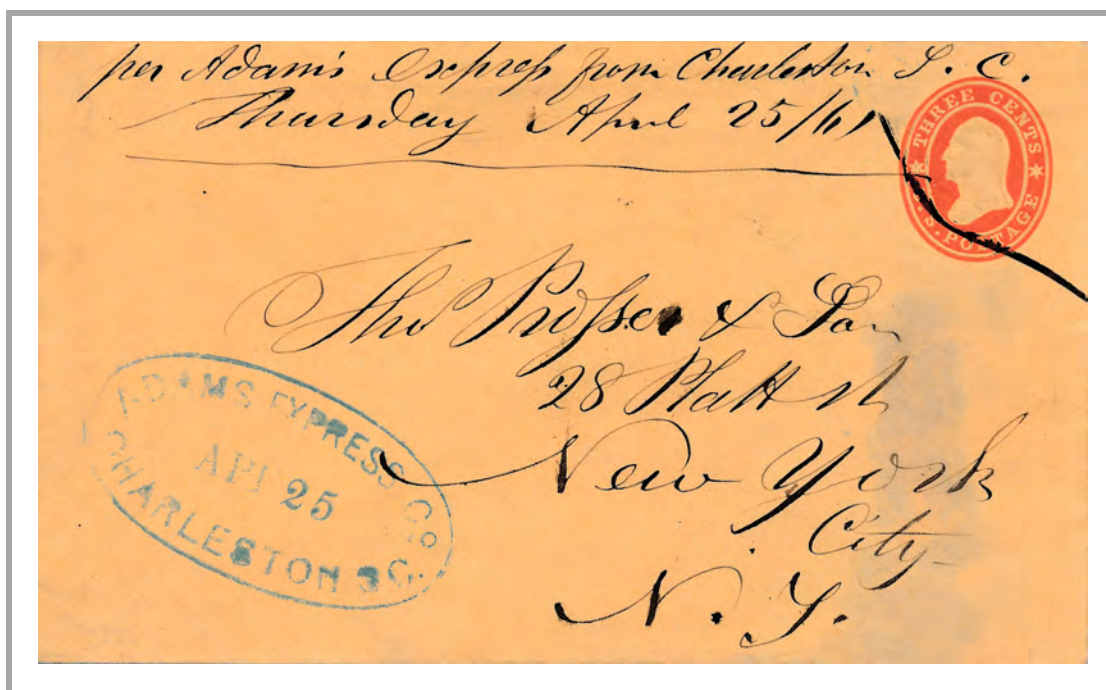 per Adams Express from Charleston S. C.
Thursday April 25/61
THREE CENTS
U.S. POSTAGE
Tho Prosser & Son
28 Platt st
New York
City
N. Y.
ADAMS EXPRESS Co
APR 25
CHARLESTON S C.